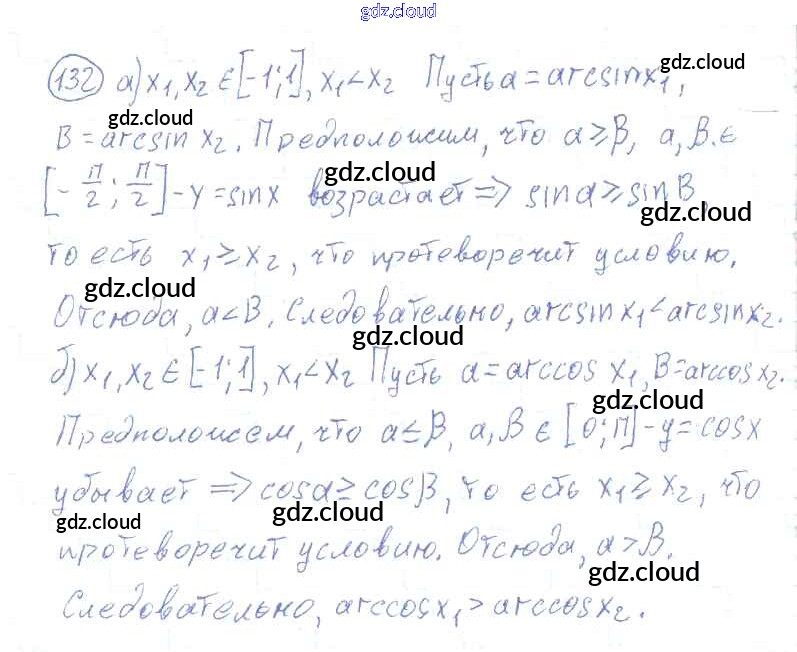 gdz.cloud
132 а) x₁, x₂ ∈ [-1; 1], x₁ < x₂ Пусть a = arcsin x₁,
gdz.cloud
gdz.cloud
B = arcsin x₂. Предположим, что a ≥ β, a, β ∈
gdz.cloud
[-π/2; π/2] - y = sin x возрастает ⇒ sin a ≥ sin B,
gdz.cloud
то есть x₁ ≥ x₂, что протеворечит условию.
gdz.cloud
Отсюда, a < B. Следовательно, arcsin x₁ < arcsin x₂.
gdz.cloud
б) x₁, x₂ ∈ [-1; 1], x₁ < x₂ Пусть a = arccos x₁, B = arccos x₂.
gdz.cloud
gdz.cloud
Предположем, что a ≤ β, a, β ∈ [0; П] - y = cos x
убывает ⇒ cos a ≥ cos β, то есть x₁ ≥ x₂, что
gdz.cloud
gdz.cloud
протеворечит условию. Отсюда, a > B.
gdz.cloud
Следовательно, arccos x₁ > arccos x₂.